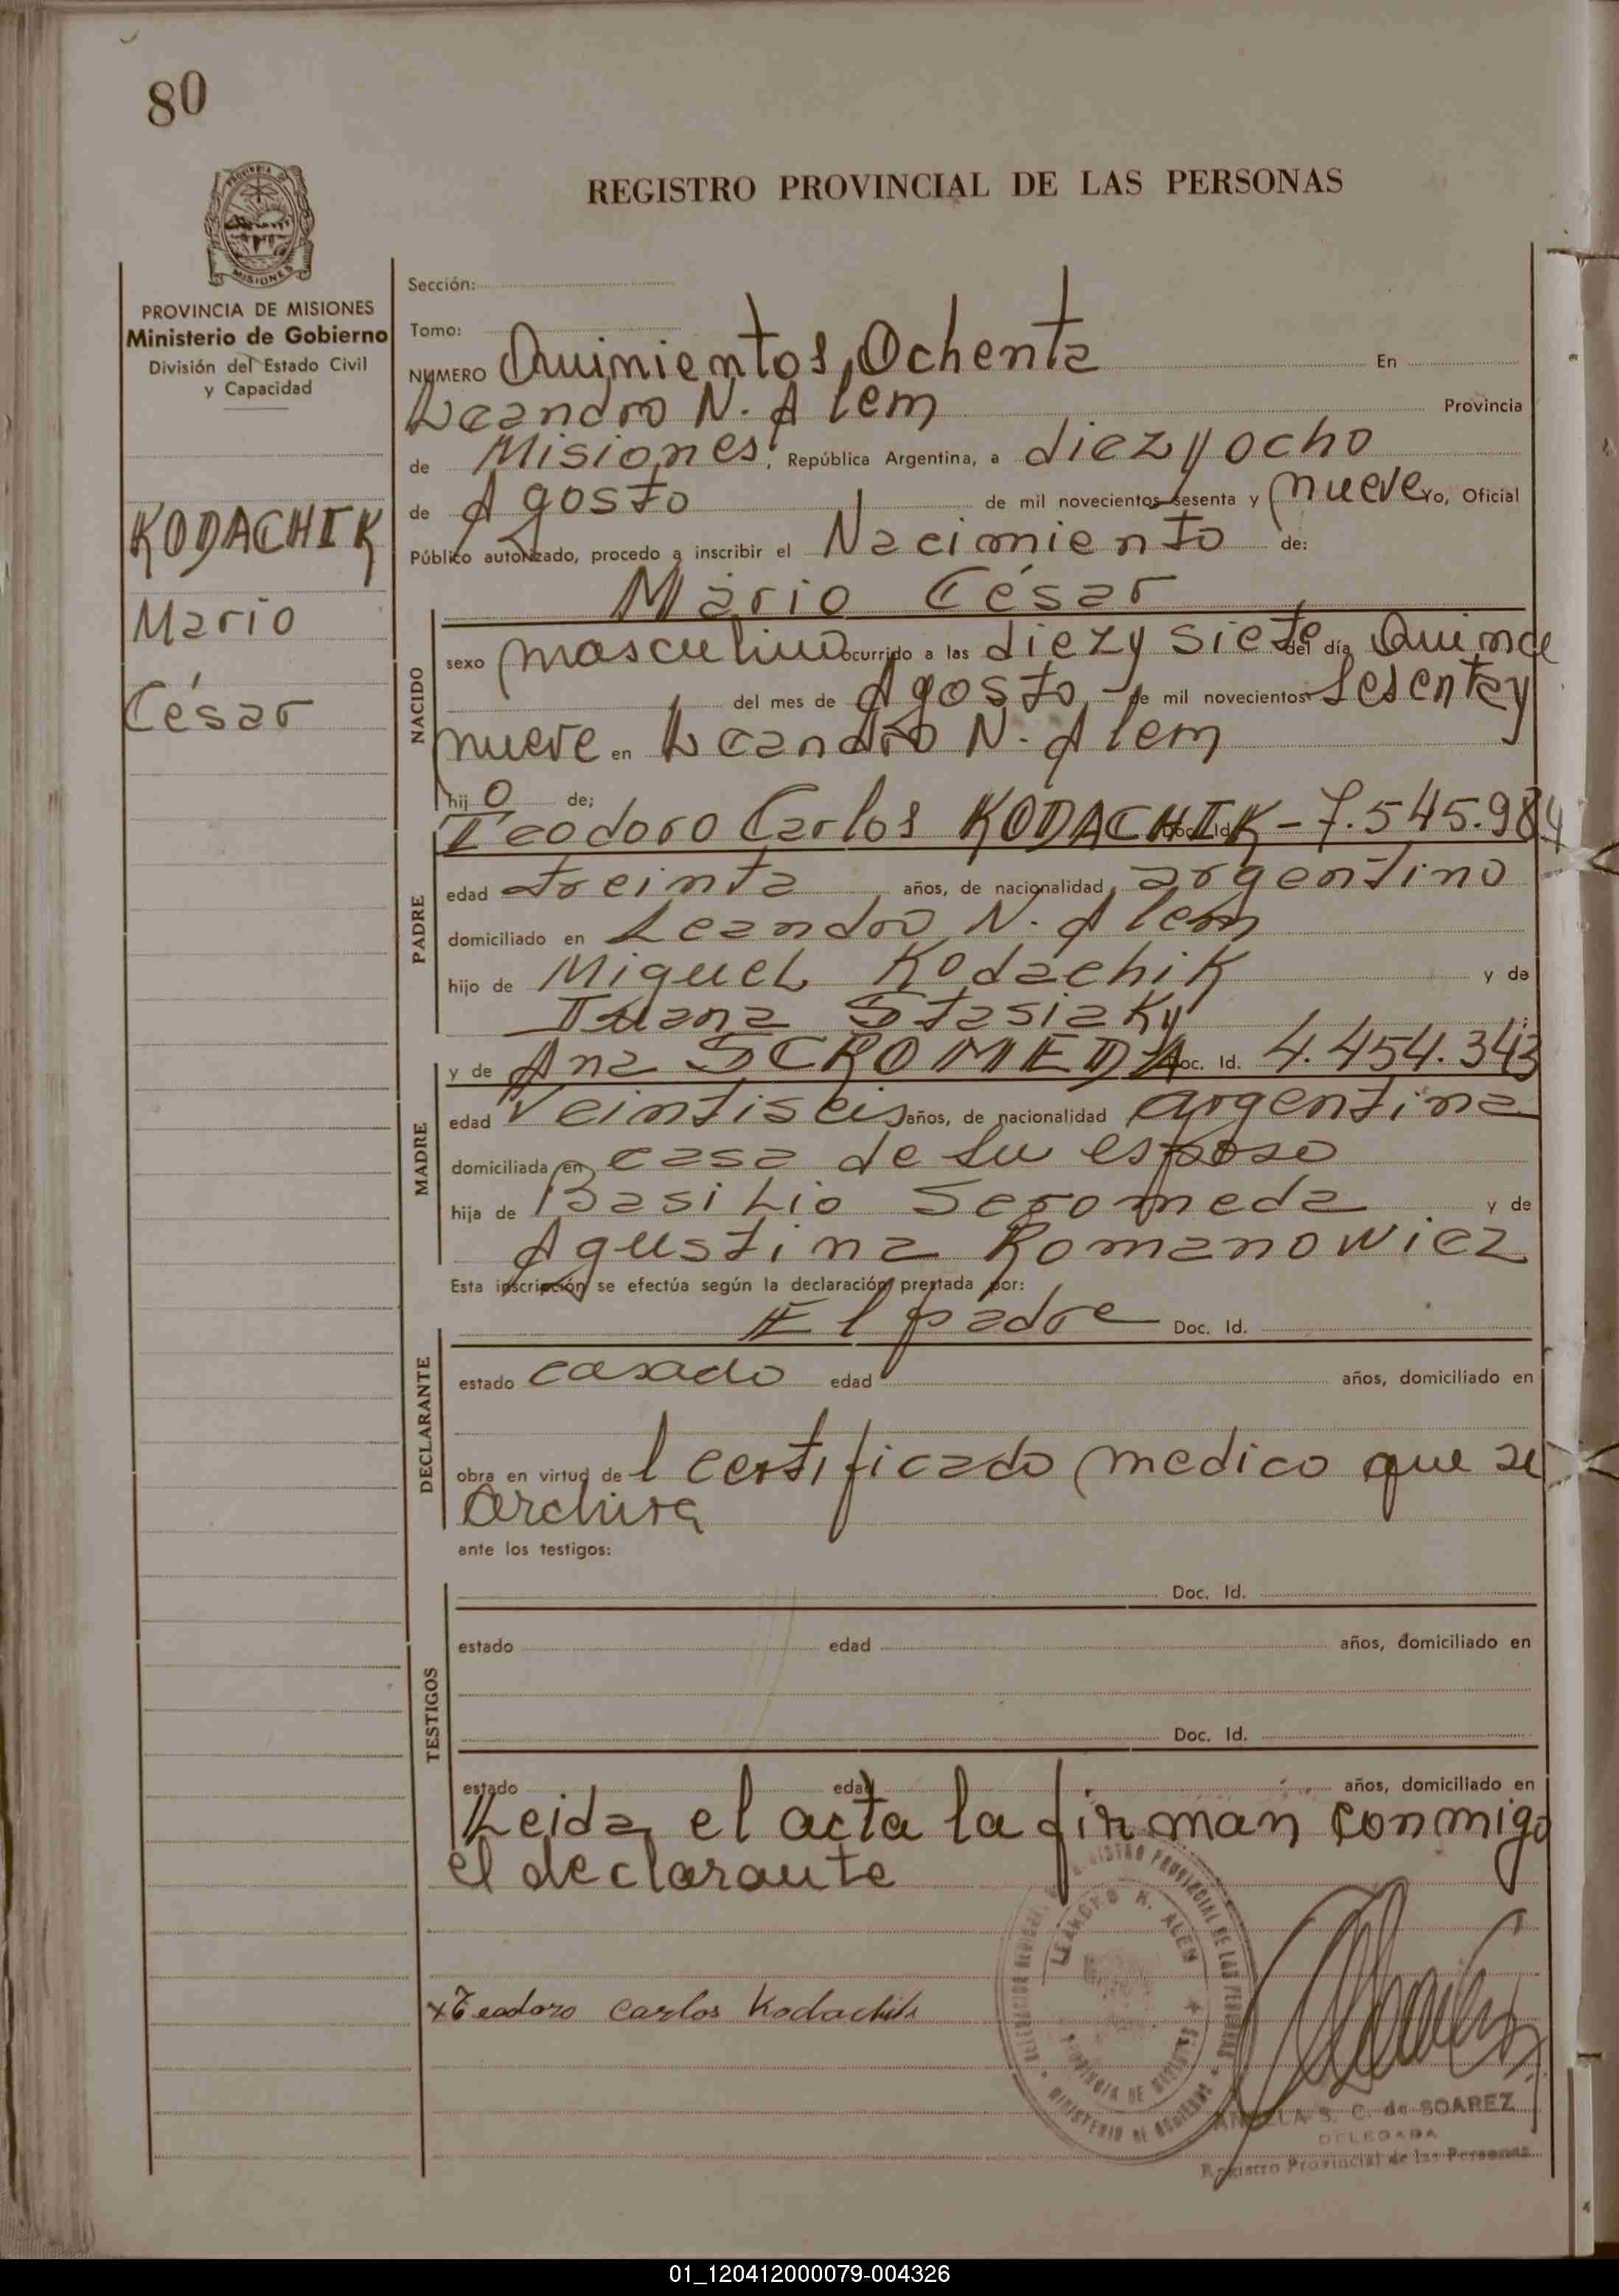 80
REGISTRO PROVINCIAL DE LAS PERSONAS
PROVINCIA DE
MISIONES
PROVINCIA DE MISIONES
Ministerio de Gobierno
División del Estado Civil
y Capacidad
KODACHIK
Mario
César
Sección:
Tomo:
NUMERO Quinientos Ochenta En
Leandro N. Alem Provincia
de Misiones, República Argentina, a diez y ocho
de Agosto de mil novecientos sesenta y nueve yo, Oficial
Público autorizado, procedo a inscribir el Nacimiento de:
Mario César
NACIDO
sexo masculino ocurrido a las diez y siete del día Quince
del mes de Agosto - de mil novecientos Sesenta y
nueve en Leandro N. Alem
hijo de:
Teodoro Carlos KODACHIK Doc. Id. - 7.545.984
PADRE
edad treinta años, de nacionalidad argentino
domiciliado en Leandro N. Alem
hijo de Miguel Kodachik y de
Juana Stasiaky
MADRE
y de Ana SCROMEDA Doc. Id. 4.454.343
edad Veintiseis años, de nacionalidad argentina
domiciliada en casa de su esposo
hija de Basilio Scromeda y de
Agustina Romanowicz
Esta inscripción se efectúa según la declaración prestada por:
DECLARANTE
El padre Doc. Id.
estado casado edad años, domiciliado en
obra en virtud del certificado medico que se
archiva
ante los testigos:
TESTIGOS
Doc. Id.
estado edad años, domiciliado en
Doc. Id.
estado edad años, domiciliado en
Leida el acta la firman conmigo
el declarante
x Teodoro Carlos Kodachik
REGISTRO PROVINCIAL DE LAS PERSONAS
LEANDRO N. ALEM
PROVINCIA DE MISIONES
MINISTERIO DE GOBIERNO
ANGELA S. C. de SOAREZ
DELEGADA
Registro Provincial de las Personas
01_120412000079-004326